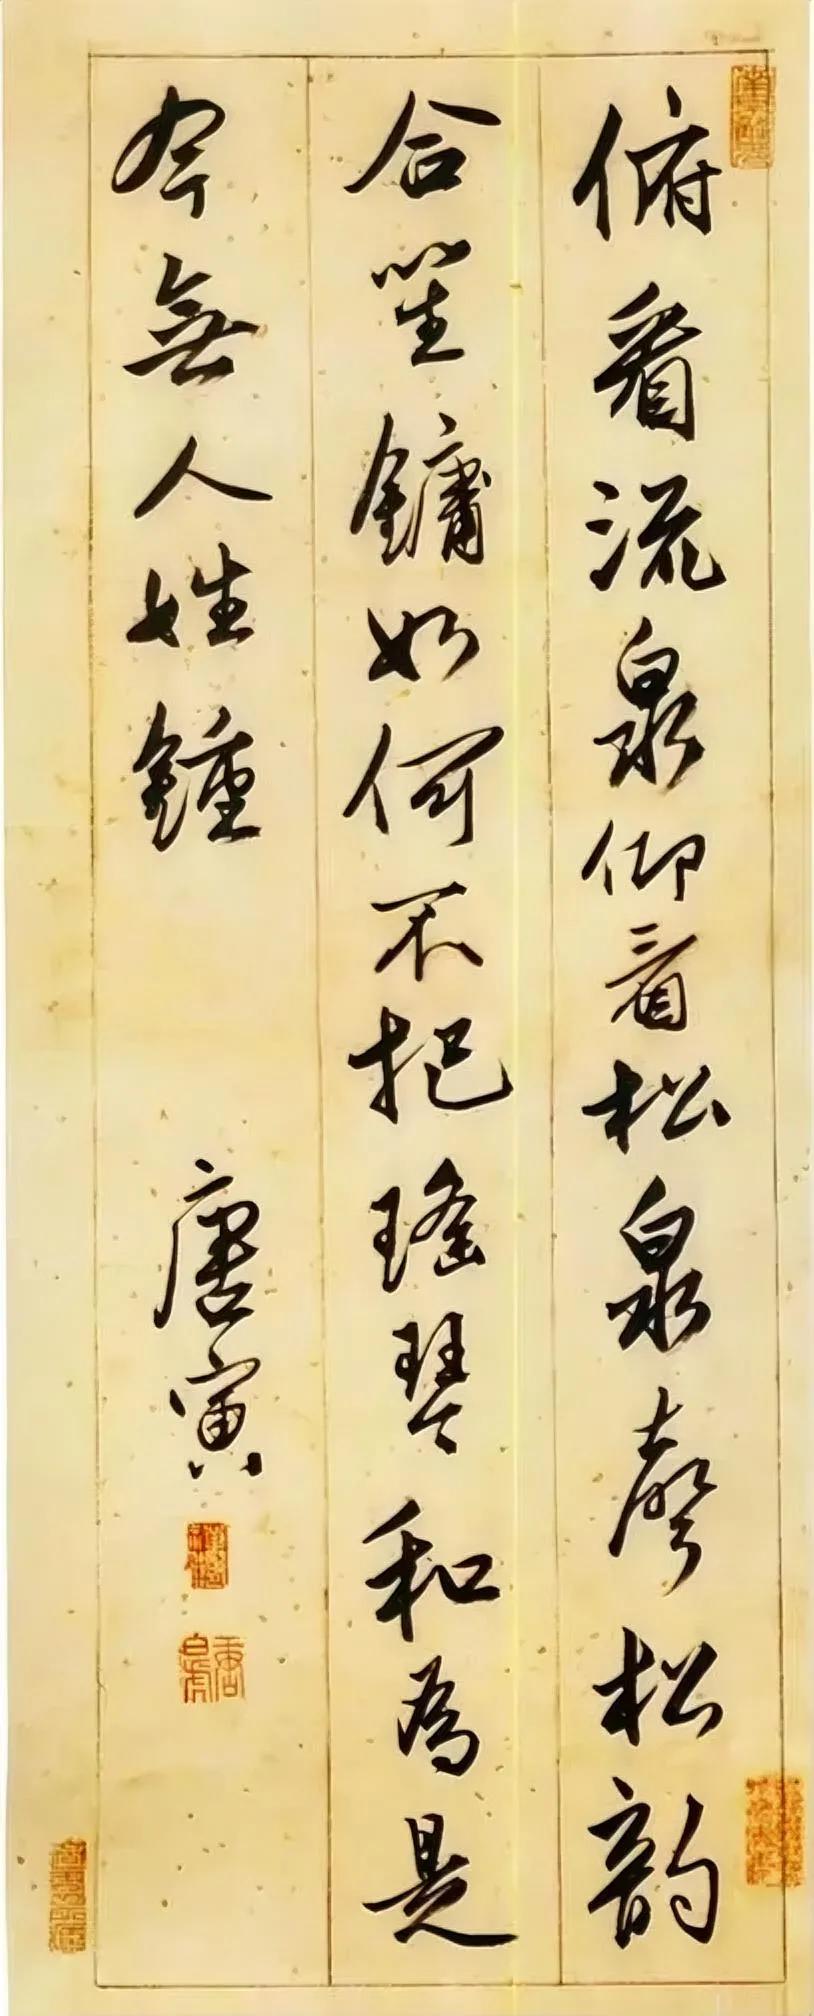 俯看流泉仰看松泉聲松韵
合笙鏞如何不把瑤琴和為是
今無人姓鍾
唐寅